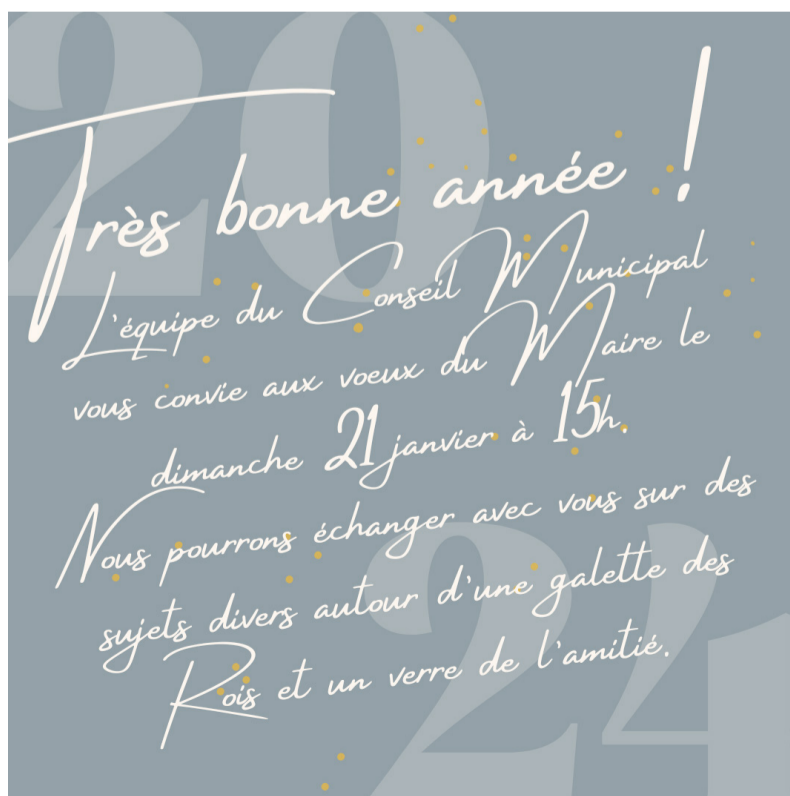 20
Très bonne année !
L'équipe du Conseil Municipal
vous convie aux voeux du Maire le
dimanche 21 janvier à 15h.
Nous pourrons échanger avec vous sur des
sujets divers autour d'une galette des
Rois et un verre de l'amitié.
24